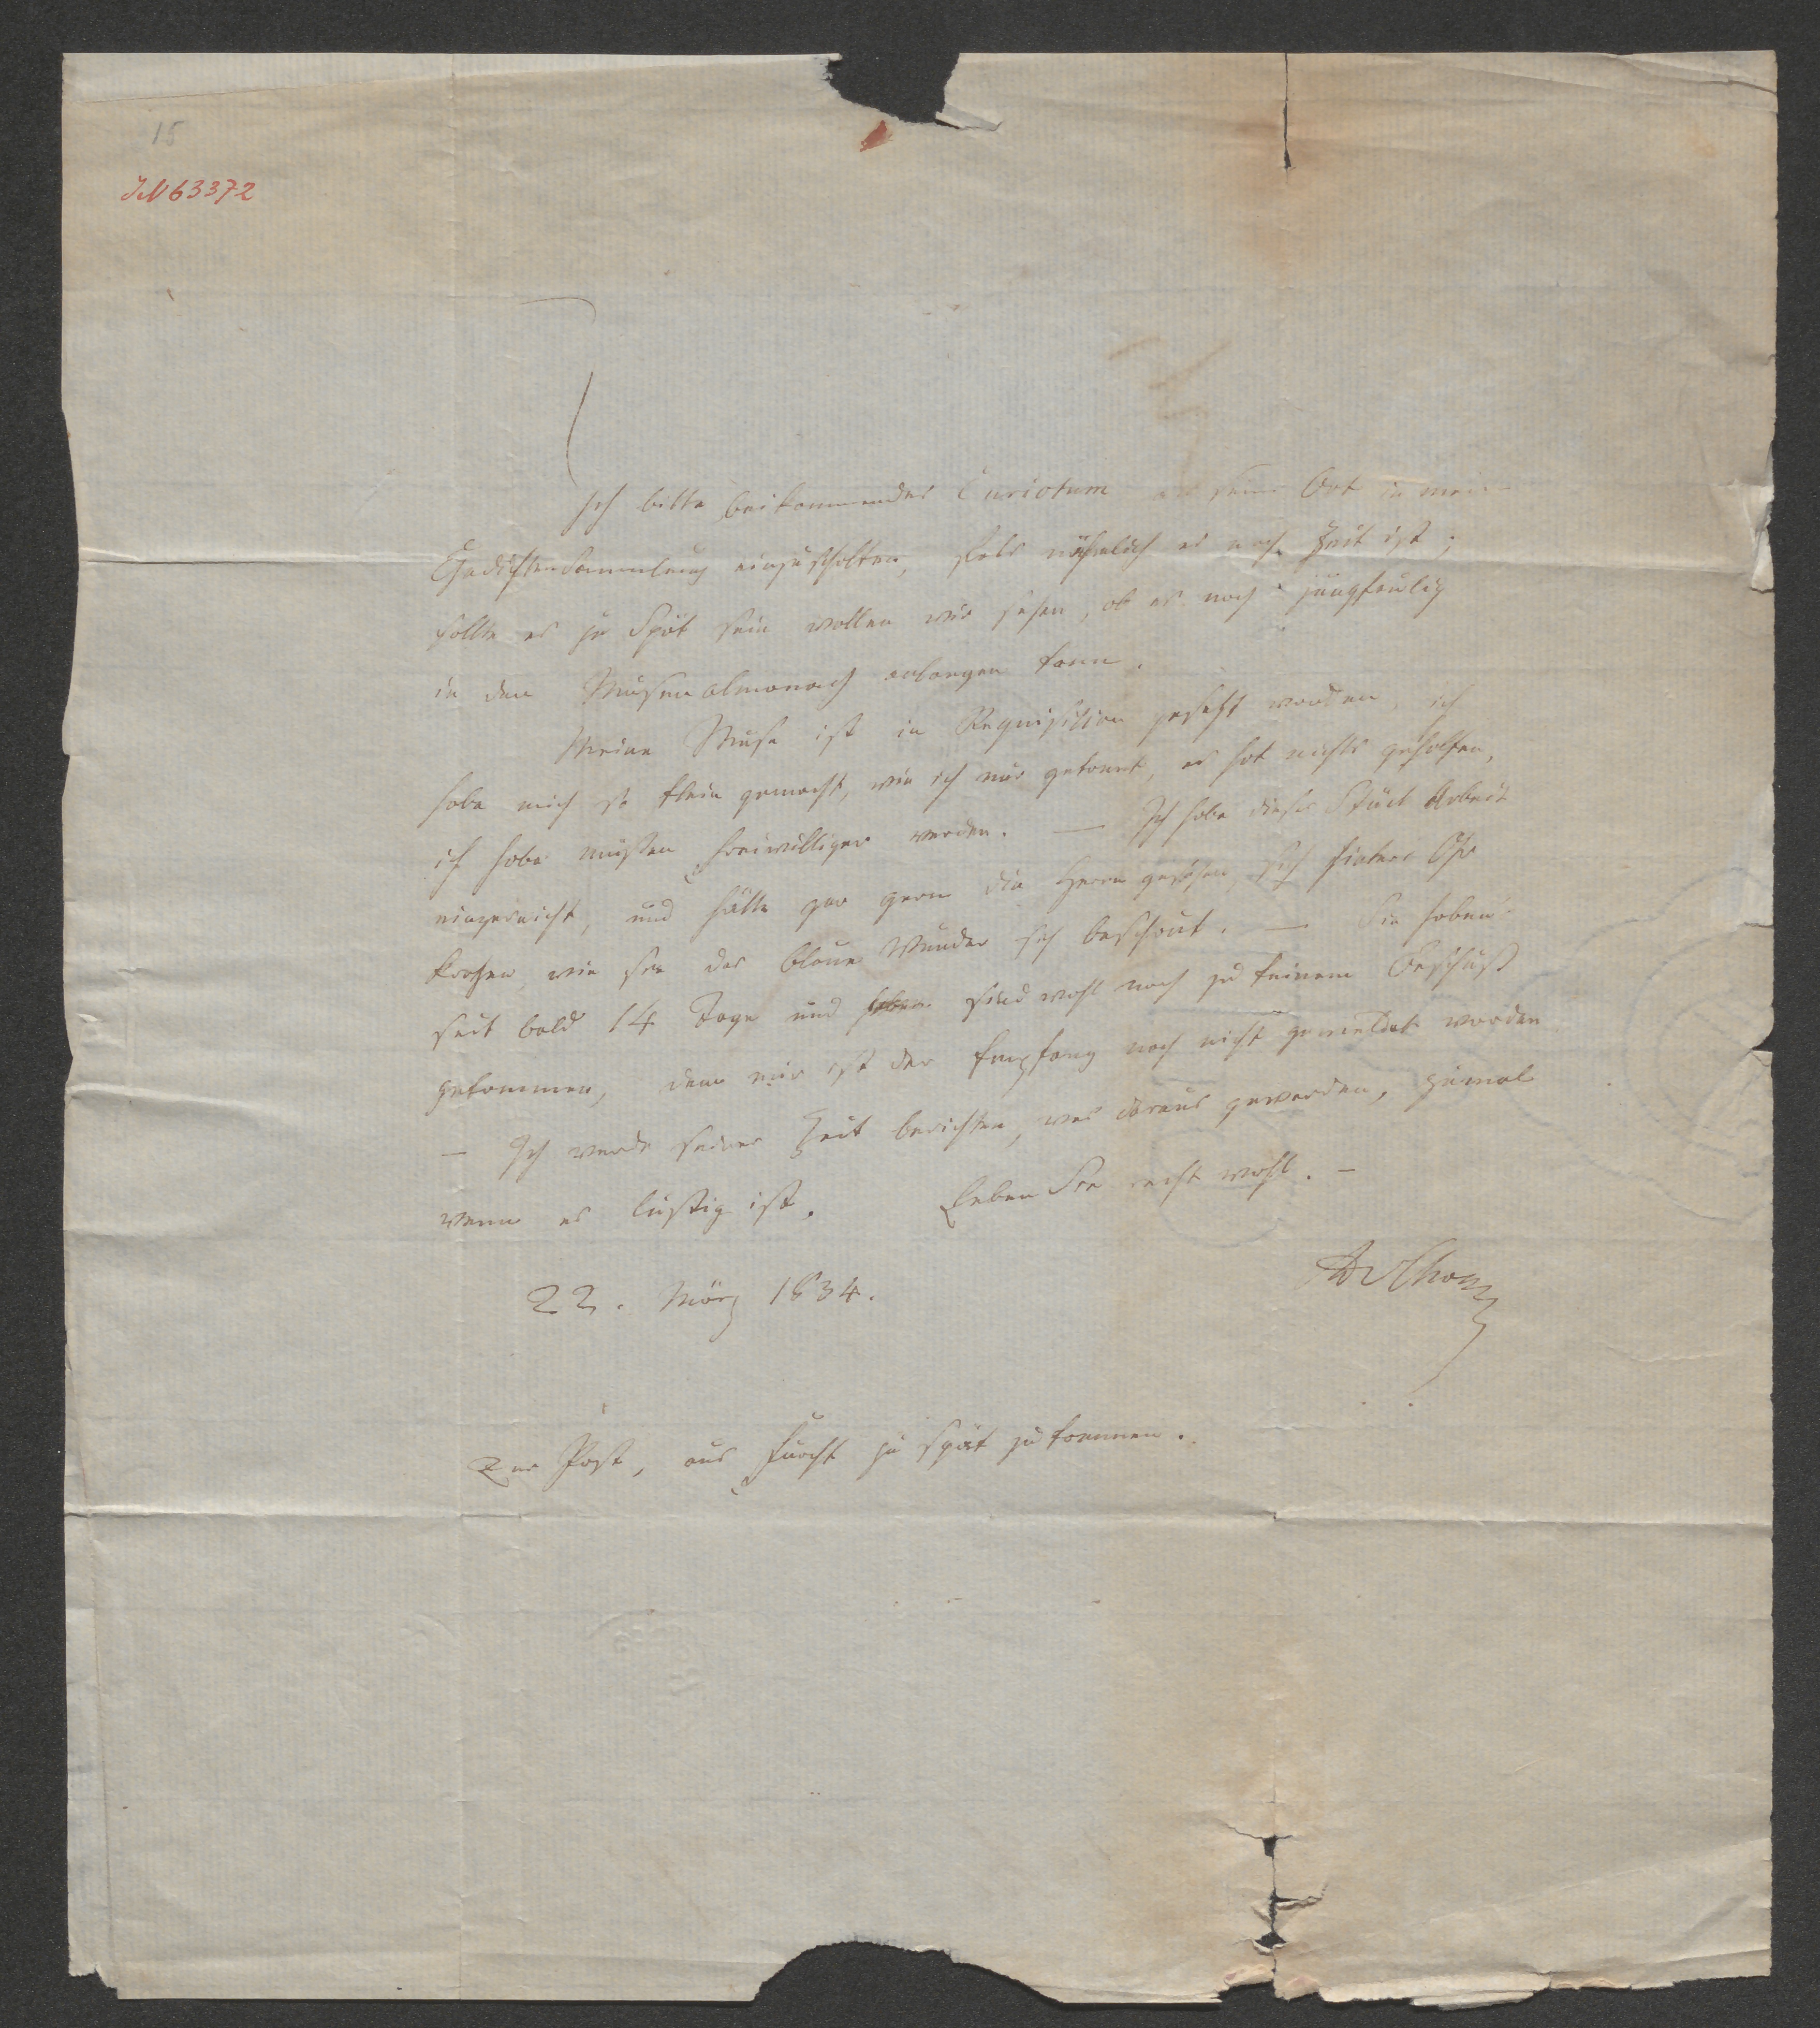 15
JN 63372
Ich bitte beikommendes Curiosum an seine Ort in meine
Gedichtensammlung einzuschalten, falls nähmlich es noch Zeit ist;
sollte es zu Spät sein wollen wir sehen, ob es noch jungfräulig
in den Musenalmanach anlangen kann.
Meine Muse ist in Requisition gesetzt worden, ich
habe mich so klein gemacht, wie ich nur gekonnt, es hat nichts geholfen,
ich habe müssen freiwilliger werden. — Ich habe dieses Stück Arbeit
eingereicht, und hätte gar gern die Herrn gesehen, sich hinters Ohr
kratzen, wie sie das blaue Wunder sich beschaut. — Sie haben's
seit bald 14 Tage und haben sind wohl noch zu keinem Beschluß
gekommen, denn mir ist der Empfang noch nicht gemeldet worden
— Ich werde seiner Zeit berichten, was daraus geworden, zumal
wenn es lustig ist. Leben Sie recht wohl. —
22. März 1834.
Zur Post, aus Furcht zu spät zu kommen.